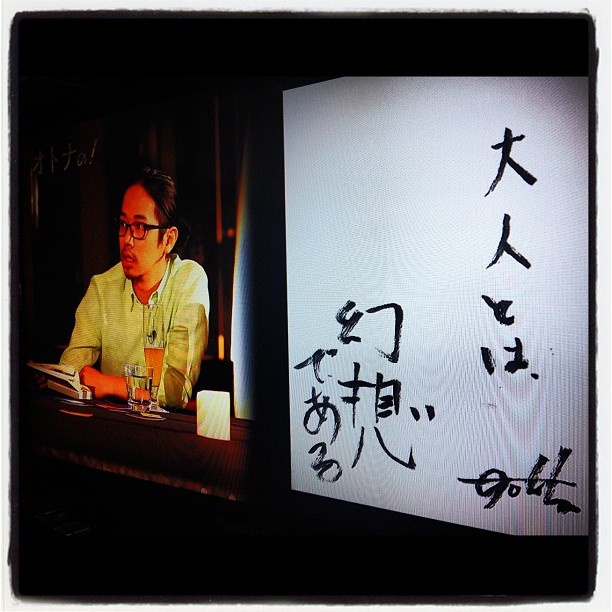 オトナの！
大人とは、
幻想
である